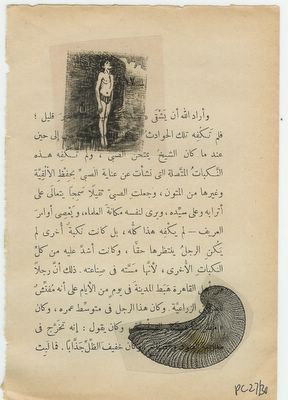 وأراد الله أن يَشْقَى قليل ؛
فلم تكفِه تلك الحوادث إلى حين
عند ما كان الشيخ يمتحن الصبى ، ولم تكفِه هذه
النكبات المتصلة التى نشأت عن عناية الصبىّ بحفظ الألفيّة
وغيرها من المتون ، وجعلت الصبىّ ثقيلًا سمجًا يتعالى على
أترابه وعلى سيِّده ، ويرى لنفسه مكانة العلماء ، ويعصى أوامر
العريف — لم يكفه هذا كلُّه ، بل كانت نكبة أخرى لم
يكن الرجل ينتظرها حقًّا ، وكانت أشدَّ عليه من كلِّ
النكبات الأخرى ، لأنها مسَّته فى صناعته . ذلك أنّ رجلًا
القاهرة هبط المدينة فى يوم من الأيام على أنه مفتش
الزراعيَّة . وكان هذا الرجل فى متوسِّط عمره ، وكان
وكان يقول : إنه تخرَّج فى
وكان خفيف الظلّ جذّابًا . فما لبث
PC27/30